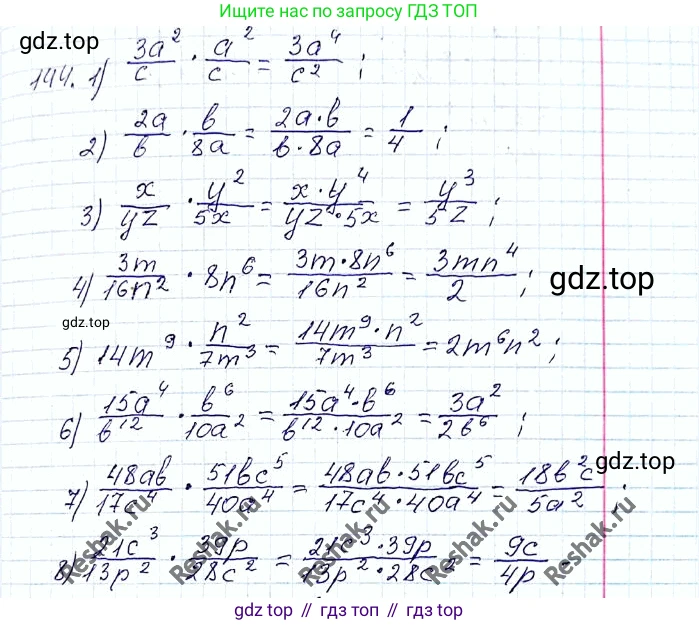 Ищите нас по запросу ГДЗ ТОП
gdz.top
144. 1) 3a²/c · a²/c = 3a⁴/c² ;
2) 2a/b · b/8a = 2a·b/b·8a = 1/4 ;
3) x/yz · y²/5x = x·y⁴/yz·5x = y³/5z ;
4) 3m/16n² · 8n⁶ = 3m·8n⁶/16n² = 3mn⁴/2 ;
gdz.top
gdz.top
5) 14m⁹ · n²/7m³ = 14m⁹·n²/7m³ = 2m⁶n² ;
6) 15a⁴/b¹² · b⁶/10a² = 15a⁴·b⁶/b¹²·10a² = 3a²/2b⁶ ;
gdz.top
7) 48ab/17c⁴ · 51bc⁵/40a⁴ = 48ab·51bc⁵/17c⁴·40a⁴ = 18b²c/5a² ;
8) 21c³/13p² · 39p/28c² = 21c³·39p/13p²·28c² = 9c/4p .
Reshak.ru
Reshak.ru
Reshak.ru
Reshak.ru
gdz топ // гдз топ // gdz top